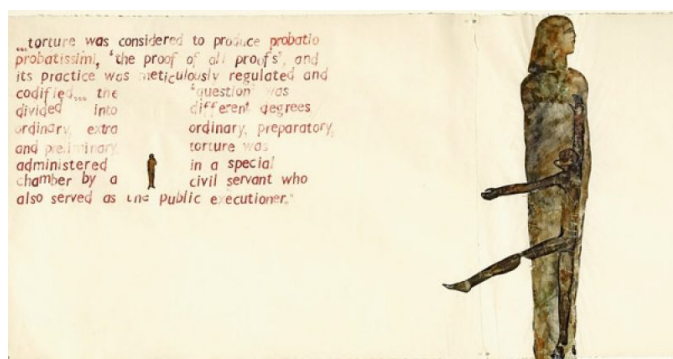 ...torture was considered to produce probatio
probatissimi, 'the proof of all proofs', and
its practice was meticulously regulated and
codified... the 'question' was
divided into different degrees
ordinary, extra ordinary, preparatory,
and preliminary torture was
administered in a special
chamber by a civil servant who
also served as the public executioner."